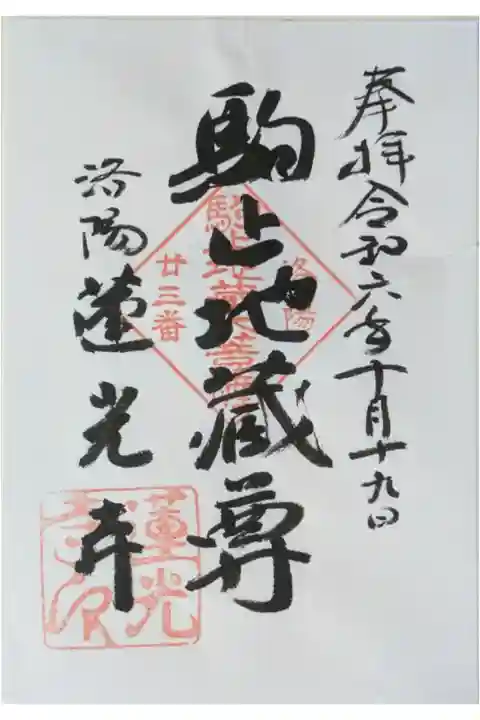 奉拝令和六年十月十九日
駒止地蔵尊
洛陽蓮光寺
洛陽
廿三番
蓮光